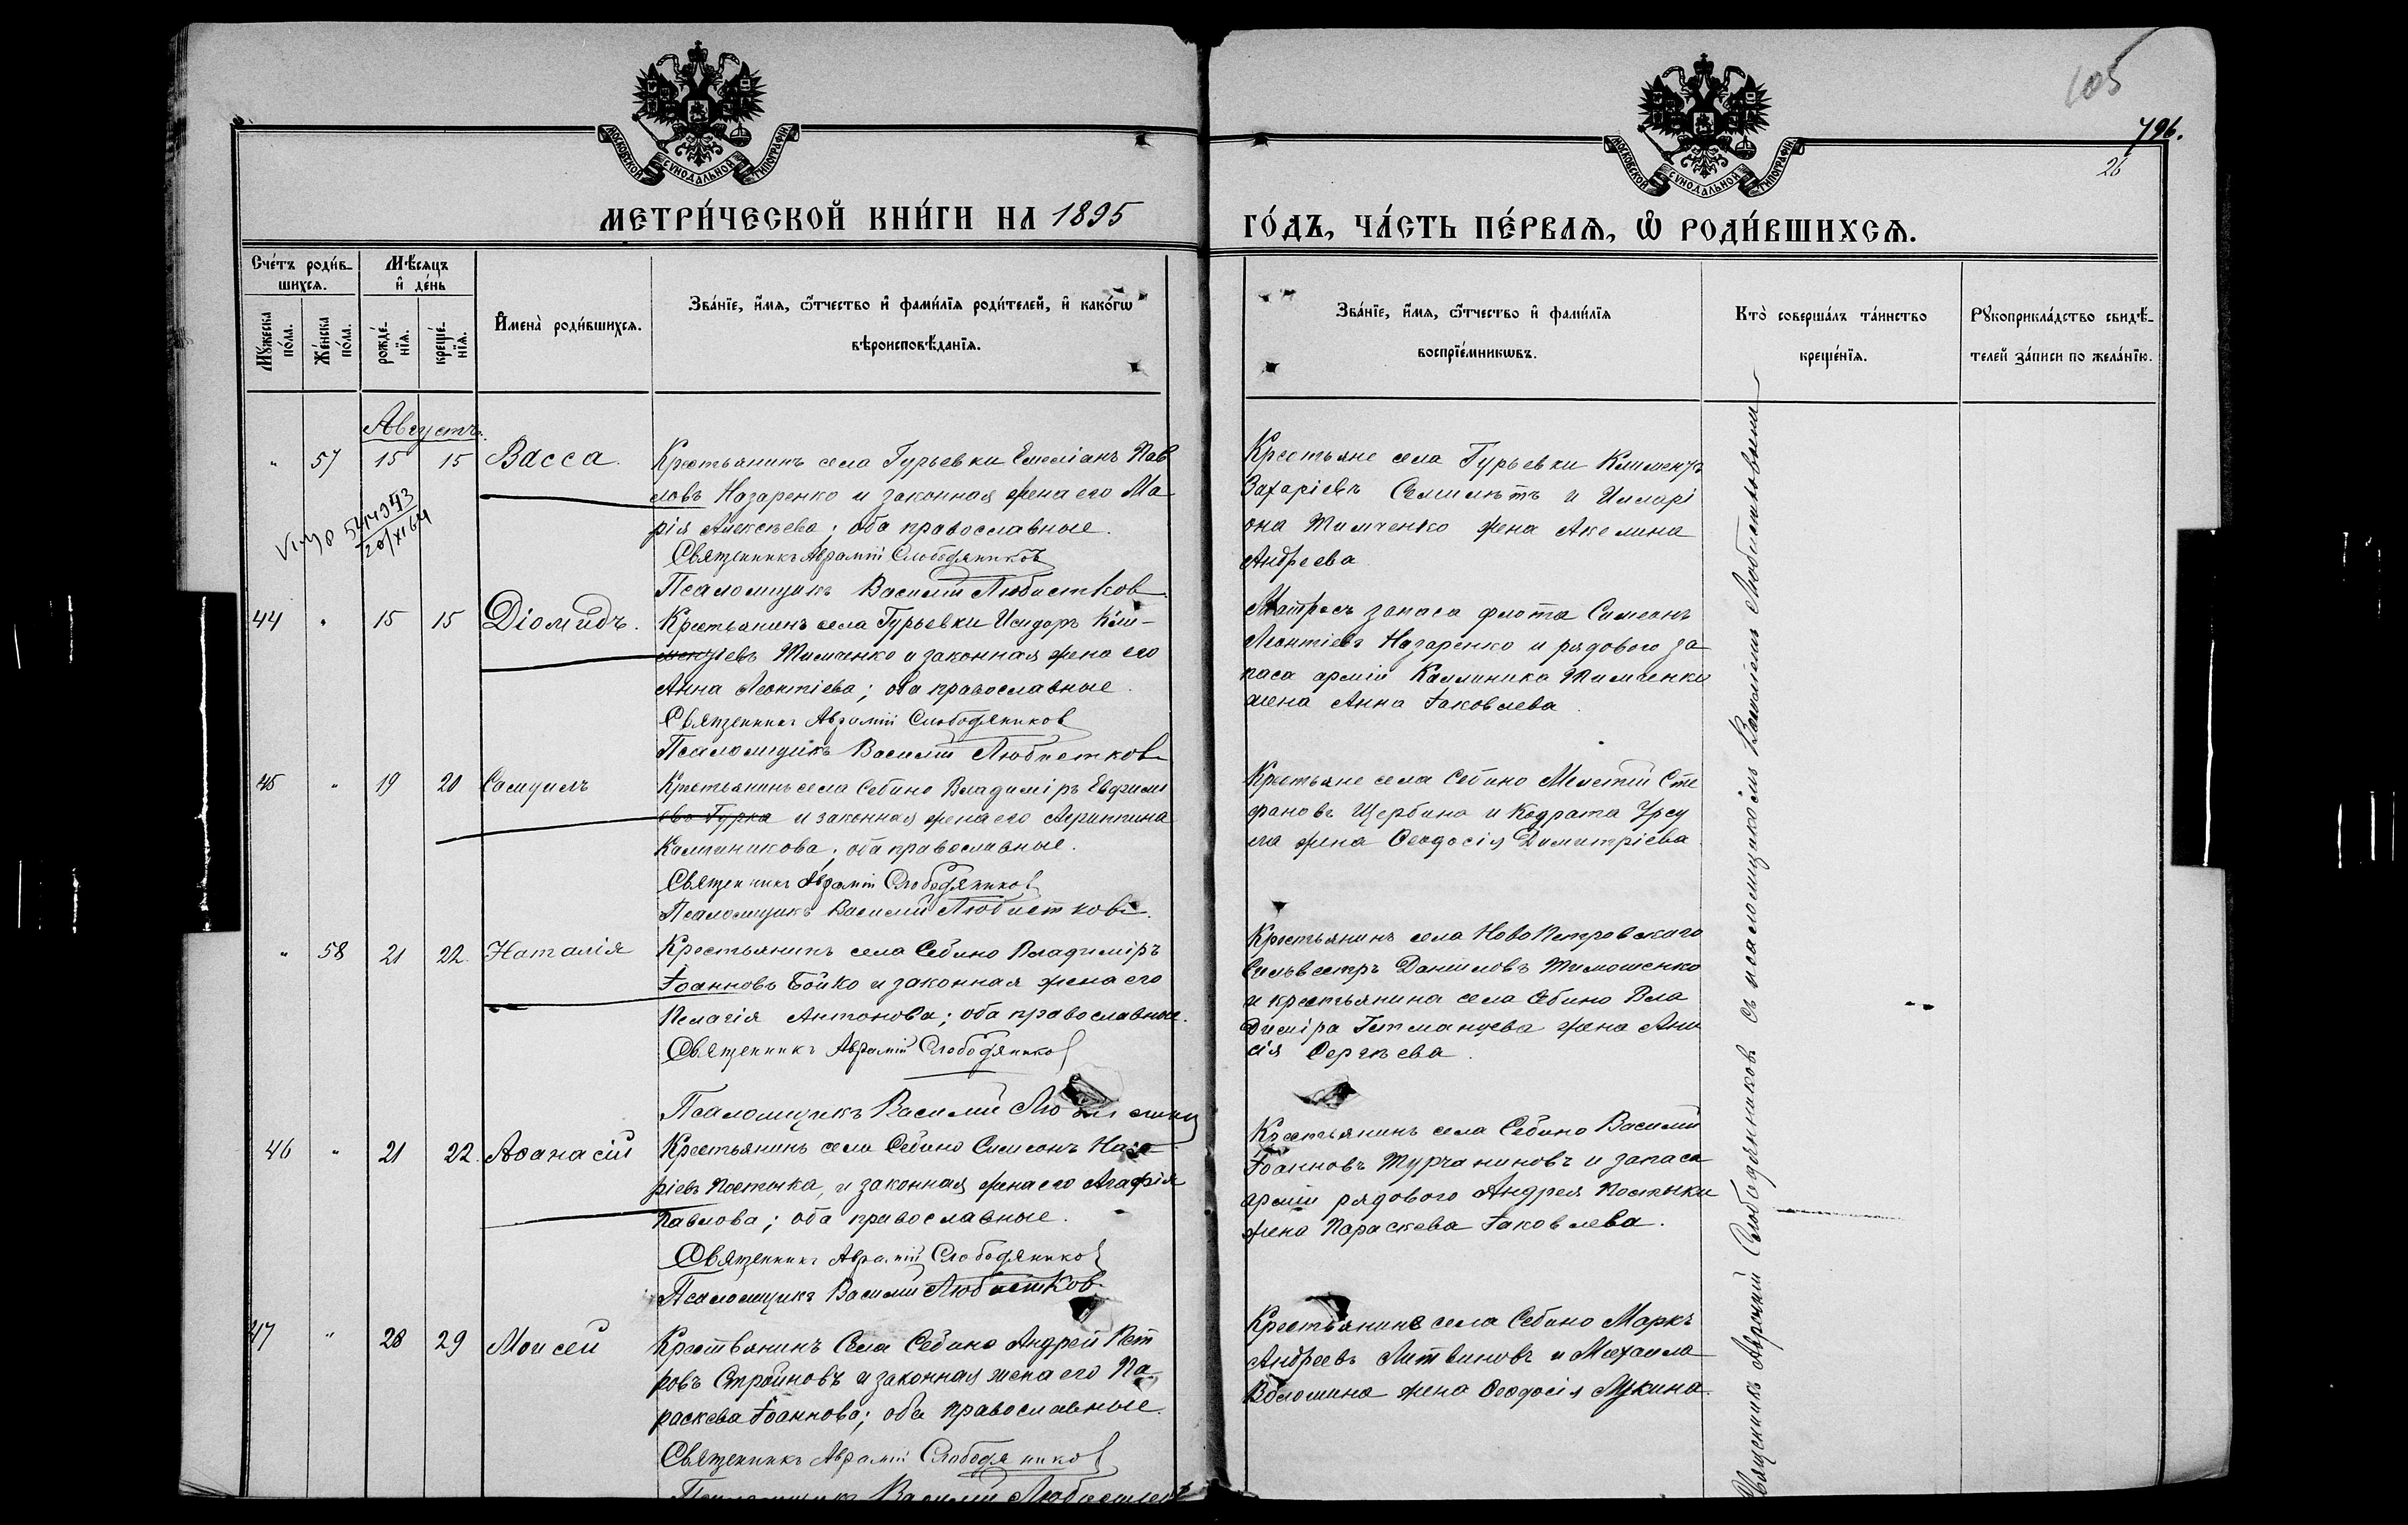 105
796.
26
МОСКОВСКОЙ СѴНОДАЛЬНОЙ ТИПОГРАФІИ
МОСКОВСКОЙ СѴНОДАЛЬНОЙ ТИПОГРАФІИ
МЕТРИ́ЧЕСКОЙ КНИ́ГИ НА 1895
ГО́ДЪ, ЧА́СТЬ ПЕ́РВАѦ, Ѽ РОДИ́ВШИХСѦ.
Сче́тъ роди́в-
шихсѧ.
Мѹ́жеска
по́ла.
Же́нска
по́ла.
Мѣ́сѧцъ
и҆ де́нь
рожде́-
нїѧ.
креще́-
нїѧ.
И҆мена̀ роди́вшихсѧ.
Зва́нїе, и҆́мѧ, ѻ҆́тчество и҆ фами́лїѧ роди́телей, и҆ како́гѡ
вѣроисповѣ́данїѧ.
Зва́нїе, и҆́мѧ, ѻ҆́тчество и҆ фами́лїѧ
воспрїе́мникѡвъ.
Кто̀ соверша́лъ та́инство
креще́нїѧ.
Рѹкоприкла́дство свидѣ́-
телей за́писи по жела́нїю.
Августъ.
" 57 15 15 Васса.
Крестьянинъ села Гурьевки Емеліанъ Пав
ловъ Назаренко и законная жена его Ма
рія Алексѣева; оба православные.
Священникъ Аврамій Слободяников
Псаломщикъ Василій Любистков
Крестьяне села Гурьевки Климентъ
Захаріевъ Семилѣтъ и Иллари
она Тимченко жена Акелина
Андреева
20/XI 64
44 " 15 15 Діомидъ.
Крестьянинъ села Гурьевки Исидоръ Кли-
ментіевъ Тимченко и законная жена его
Анна Леонтіева; оба православные.
Священникъ Аврамій Слободяников
Псаломщикъ Василій Любистков
Матросъ запаса флота Симеонъ
Леонтіевъ Назаренко и рядового за
паса арміи Каллиника Тимченки
жена Анна Іаковлева.
45 " 19 20 Самуилъ
Крестьянинъ села Себино Владиміръ Евфимі
евъ Гурка и законная жена его Агриппина
Каллиникова; оба православные.
Священникъ Аврамій Слободяников
Псаломщикъ Василій Любистков.
Крестьяне села Себино Мелетій Сте
фановъ Щербина и Кодрата Урсу
ла жена Ѳеодосія Димитріева.
" 58 21 22. Наталія
Крестьянинъ села Себино Владиміръ
Іоанновъ Бойко и законная жена его
Пелагія Антонова; оба православные.
Священникъ Аврамій Слободяников
Псаломщикъ Василій
Крестьянинъ села НовоПетровскаго
Сильвестръ Даниловъ Тимошенко
и крестьянина села Себино Вла
диміра Гетманцева жена Ани
сія Сергѣева.
46 " 21 22. Аѳанасій
Крестьянинъ села Себино Симеонъ Наза
ріевъ Постыка, и законная жена его Агафія
Павлова; оба православные.
Священникъ Аврамій Слободяников
Псаломщикъ Василій Любистков
Крестьянинъ села Себино Василій
Іоанновъ Турчаниновъ и запаса
арміи рядового Андрея Постыки
жена Параскева Іаковлева.
47 " 28 29 Моисей
Крестьянинъ Села Себино Андрей Пет
ровъ Стройновъ и законная жена его Па-
раскева Іоаннова; оба православные.
Священникъ Аврамій Слободяников
Псаломщикъ Василій Любистков
Крестьянине села Себино Маркъ
Андреевъ Литвиновъ и Михаила
Волошина жена Ѳеодосія Лукина.
Священникъ Аврамій Слободянников съ псаломщикомъ Василіемъ Любистковымъ